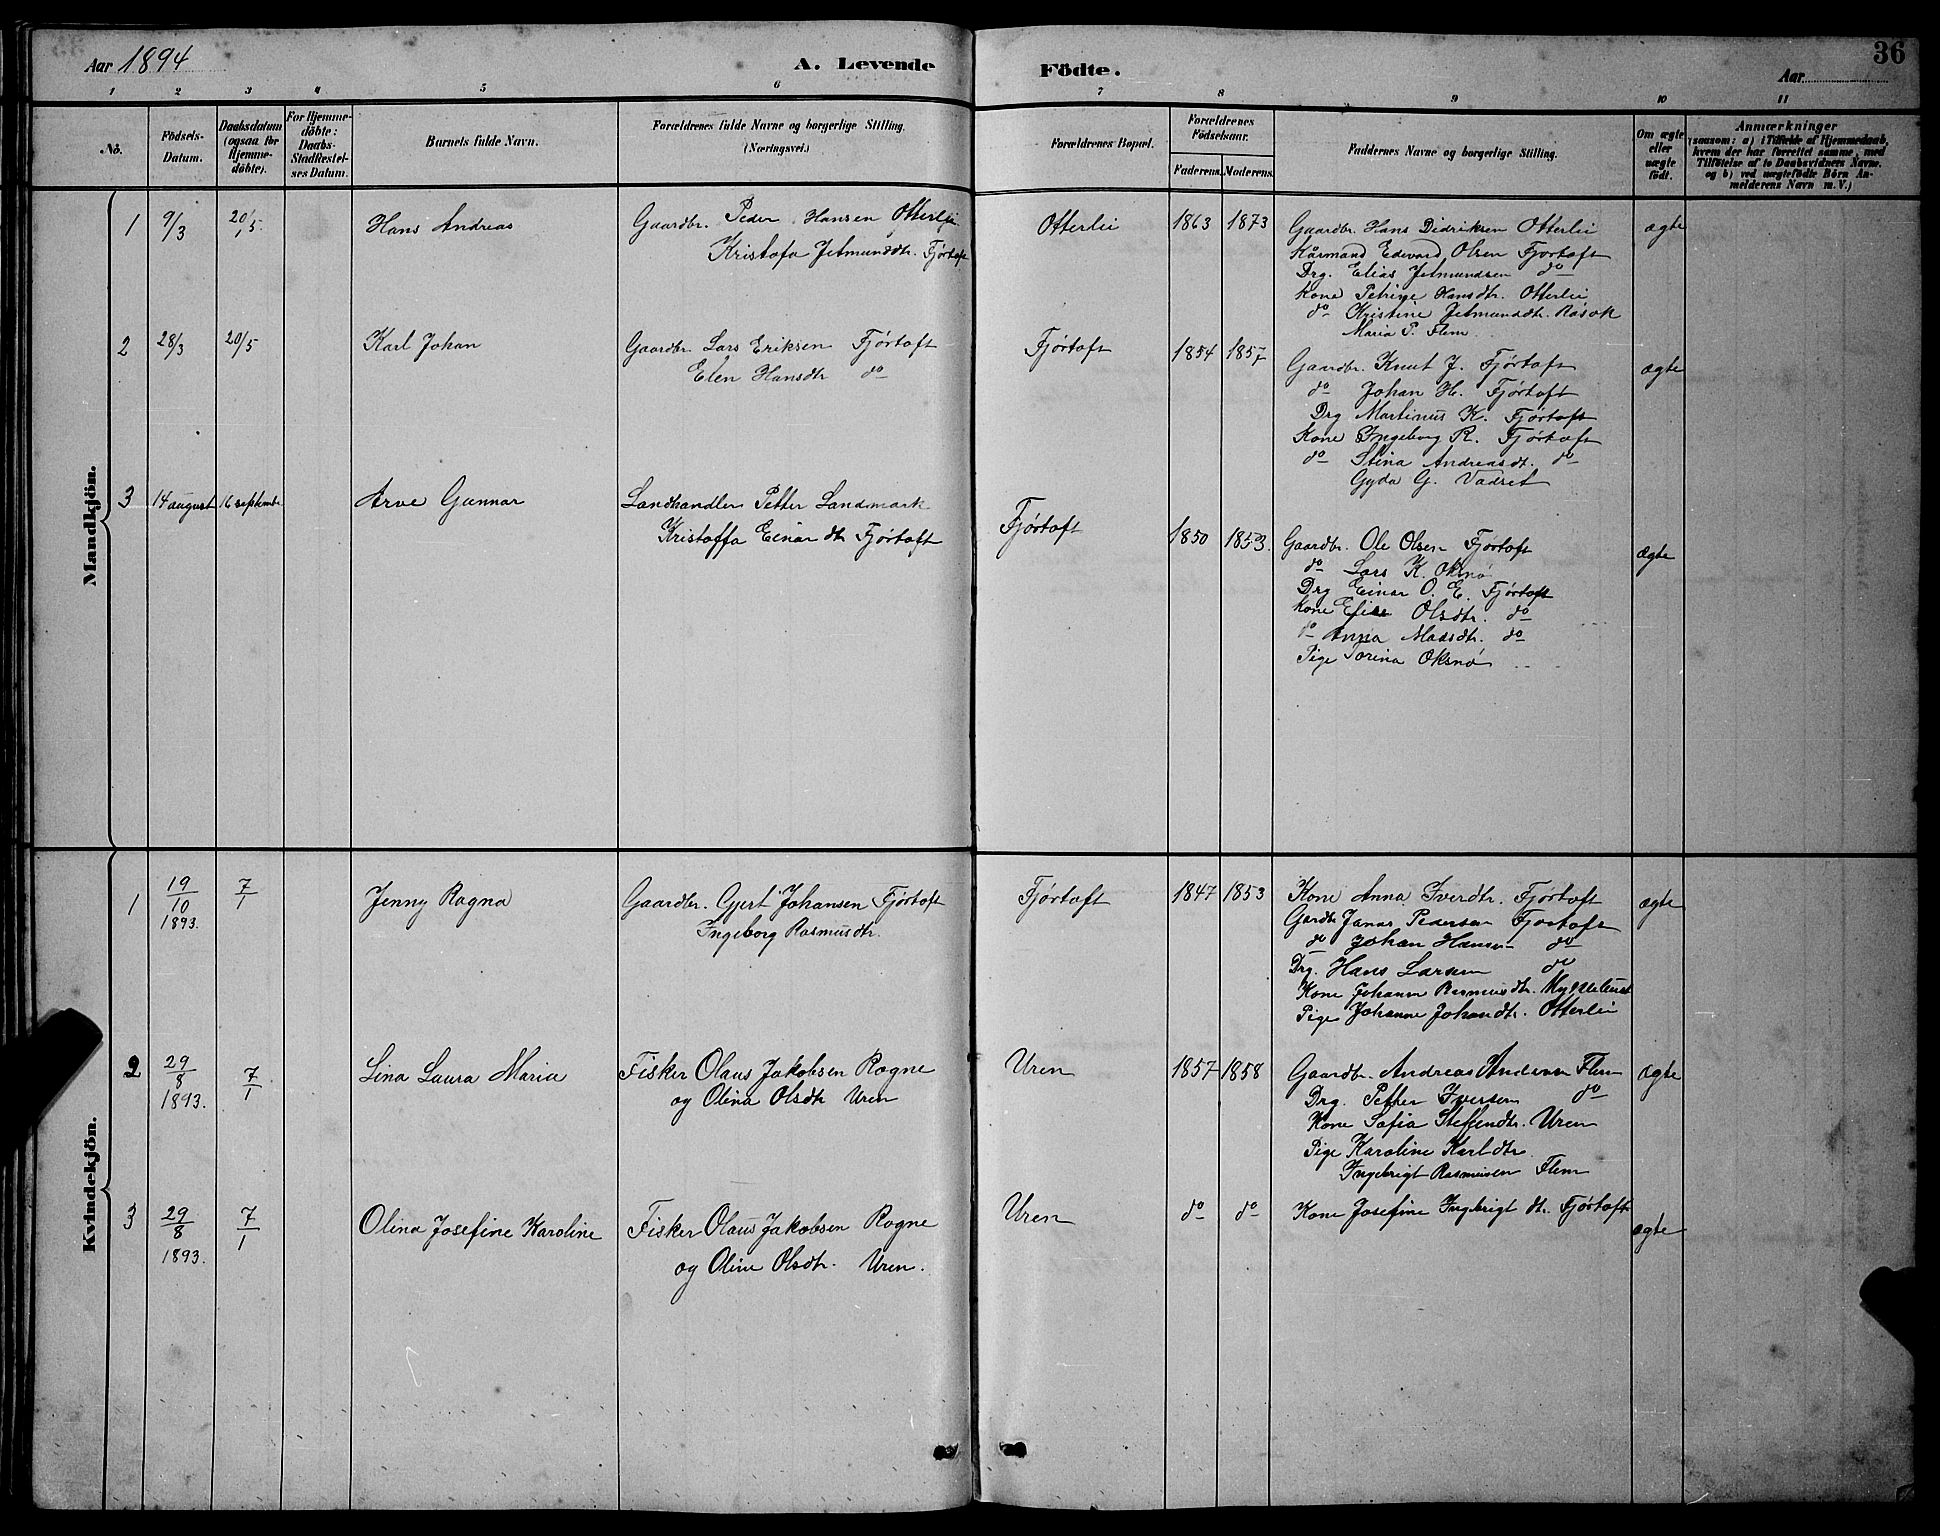 Aar 1894
A. Levende Födte.
Aar
36
1 2 3 4 5 6 7 8 9 10 11
No.
Födsels-
Datum.
Daabsdatum
(ogsaa for
Hjemme-
döbte).
For Hjemme-
döbte:
Daabs-
Stadfæstel-
ses Datum.
Barnets fulde Navn.
Forældrenes fulde Navne og borgerlige Stilling.
(Næringsvei.)
Forældrenes Bopæl.
Forældrenes
Födselsaar.
Faderens. Moderens.
Faddernes Navne og borgerlige Stilling.
Om ægte
eller
uægte
født.
Anmærkninger
(saasom: a) i Tilfælde af Hjemmedaab,
hvem der har forrettet samme, med
Tilföielse af to Daabsvidners Navne.
og b) ved uægtefödte Börn An-
melderens Navn m. V.)
Mandkjön.
1 9/3 20/5. Hans Andreas
Gaardbr. Peder Hansen Otterlei
Kristofa Jetmunddtr. Fjørtoft
Otterlei 1863 1873
Gaardbr. Hans Didriksen Otterlei
Kårmand Edevard Olsen Fjørtoft
Drg. Elias Jetmundsen do
Kone Petrine Hansdtr. Otterlei
do Kristine Jetmunddtr. Råsok
Maria P. Flem
ægte
2 28/3 20/5 Karl Johan
Gaardbr. Lars Eriksen Fjørtoft
Elen Hansdtr do
Fjørtoft 1854 1857
Gaardbr. Knut J. Fjørtoft
do Johan H. Fjørtoft
Drg Martinus K. Fjørtoft
Kone Ingeborg R. Fjørtoft
do Stina Andreasdt. do
Gyda G. Vadset
ægte
3 14 august 16 septembr Arve Gunnar
Landhandler Petter Landmark
Kristoffa Einardtr Fjørtoft
Fjørtoft 1850 1853.
Gaardbr. Ole Olsen Fjørtoft
do Lars K. Oksnø
Drg Einar O. E. Fjørtoft
Kone Olsdtr. do
do Anna Madsdtr. do
Pige Torina Oksnø
ægte
Kvindekjön.
1 19/10 1893. 7/1 Jenny Ragna
Gaardbr. Gjert Johansen Fjørtoft
Ingeborg Rasmusdtr.
Fjørtoft 1847 1853
Kone Anna Iverdtr. Fjørtoft
Gardbr Janas Pedersen Fjørtoft
do Johan Hansen do
Drg. Hans Larsen do
Kone Johanna Rasmusdtr.
Pige Johanne Johandtr. Otterlei
ægte
2 29/8 1893. 7/1 Lina Laura Maria
Fisker Olaus Jakobsen Rogne
og Olina Olsdtr Uren
Uren 1857 1858
Gaardbr. Andreas Andersen Flem
Drg. Petter Iversen do
Kone Sofia Steffendtr. Uren
Pige Karoline Karldtr.
Ingebrigt Rasmusen Flem
ægte
3 29/8 1893. 7/1 Olina Josefine Karoline
Fisker Olaus Jakobsen Rogne
og Oline Olsdtr. Uren.
Uren do do
Kone Josefine Ingebrigtdtr. Fjørtoft
ægte